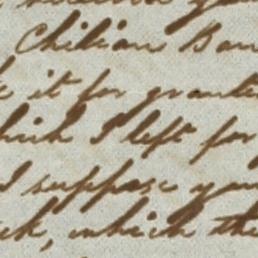 Chilian Bar
it for grante
which I left for
I suppose you
which the